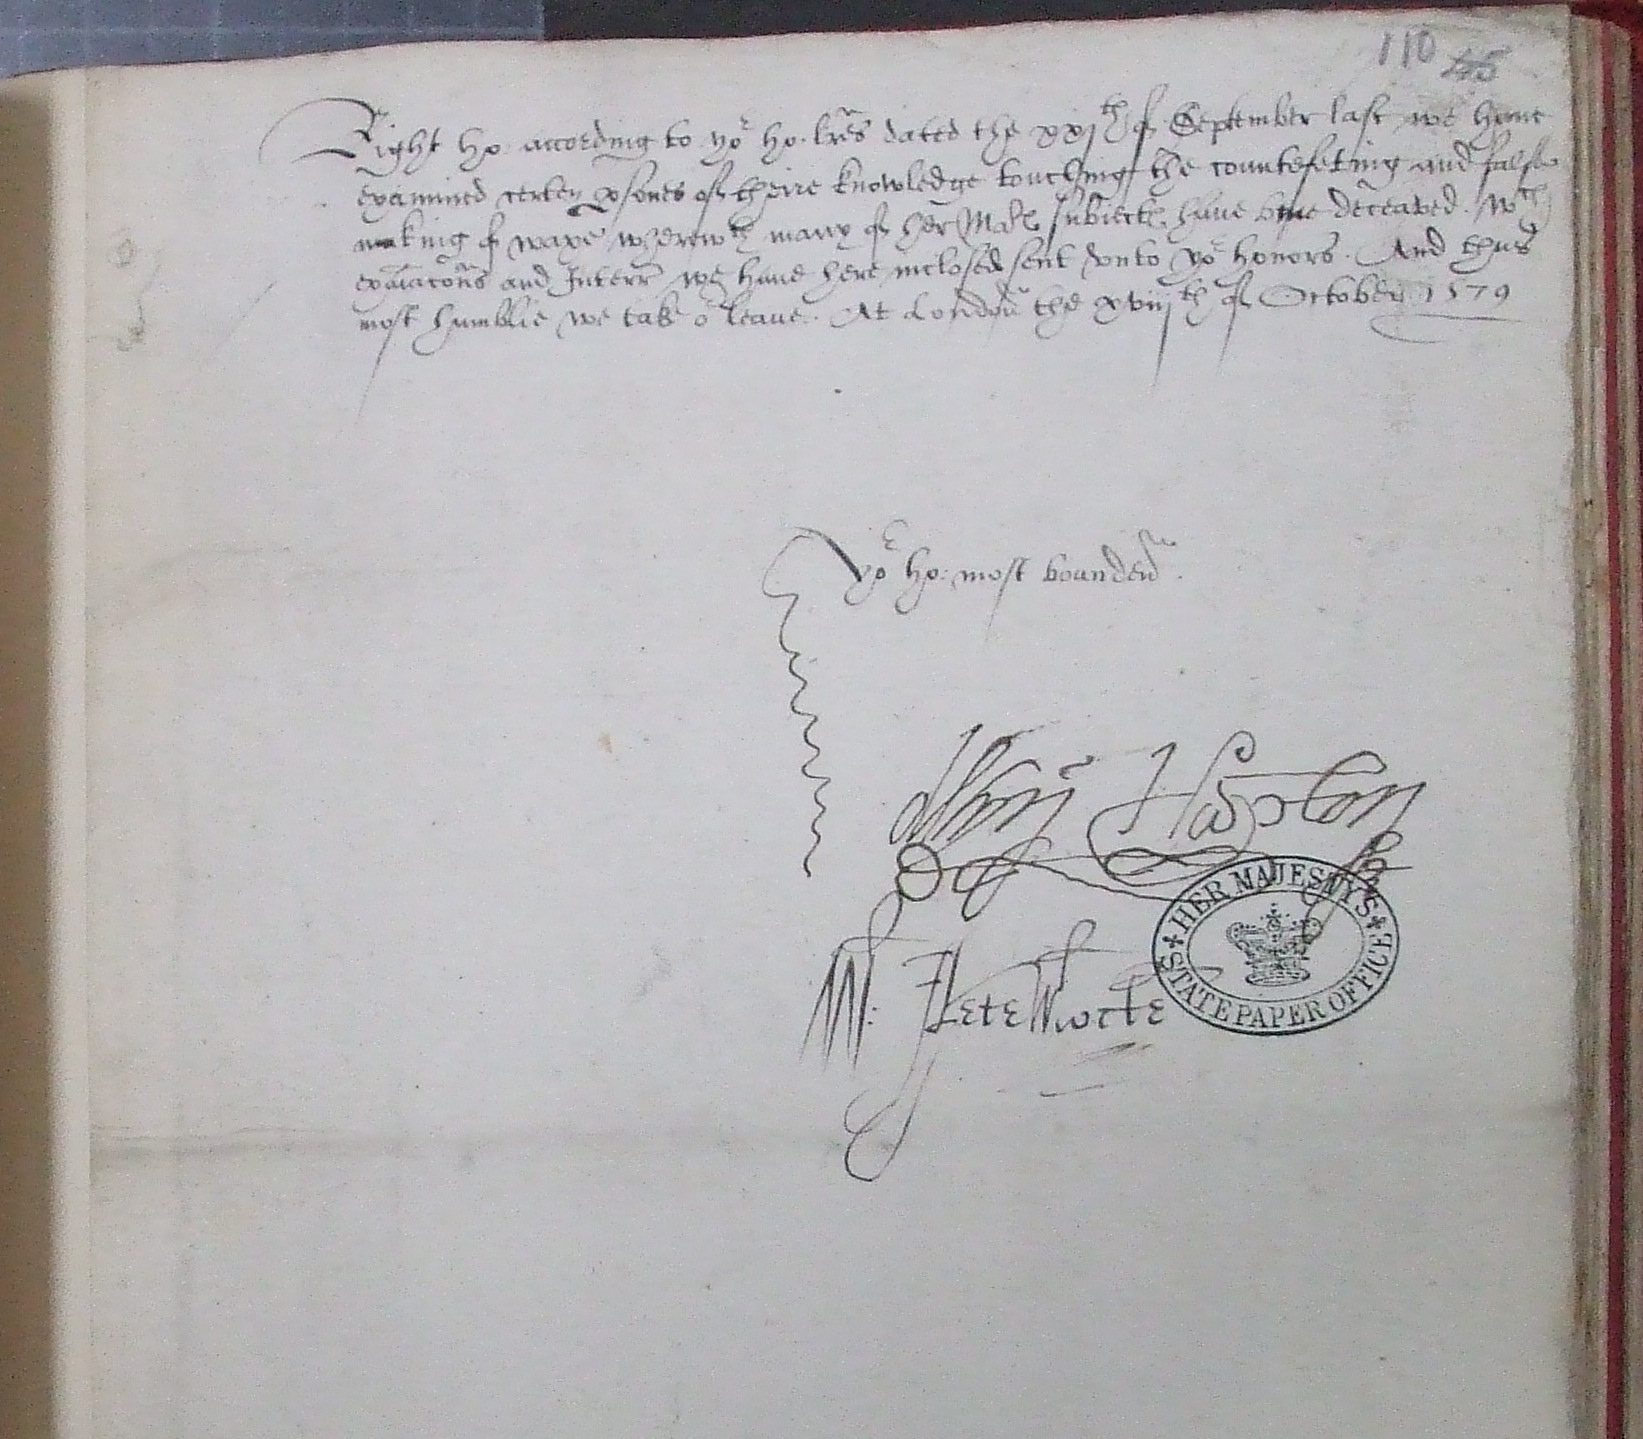 110 45
Right ho: according to yor ho. lres dated the xxjth of September last we have
examined certen psones of theire knowledge touching the counterfeting and false
making of waxe wherewth many of her Mats subiects have bene deceaved. Wch
exaiacons and Interr we have here inclosed sent vnto yor honors. And thus
most humblie we take or leave. At London the xviijth of October 1579
Yor ho: most bounden
W: Fletewoode
HER MAJESTY'S
STATE PAPER OFFICE